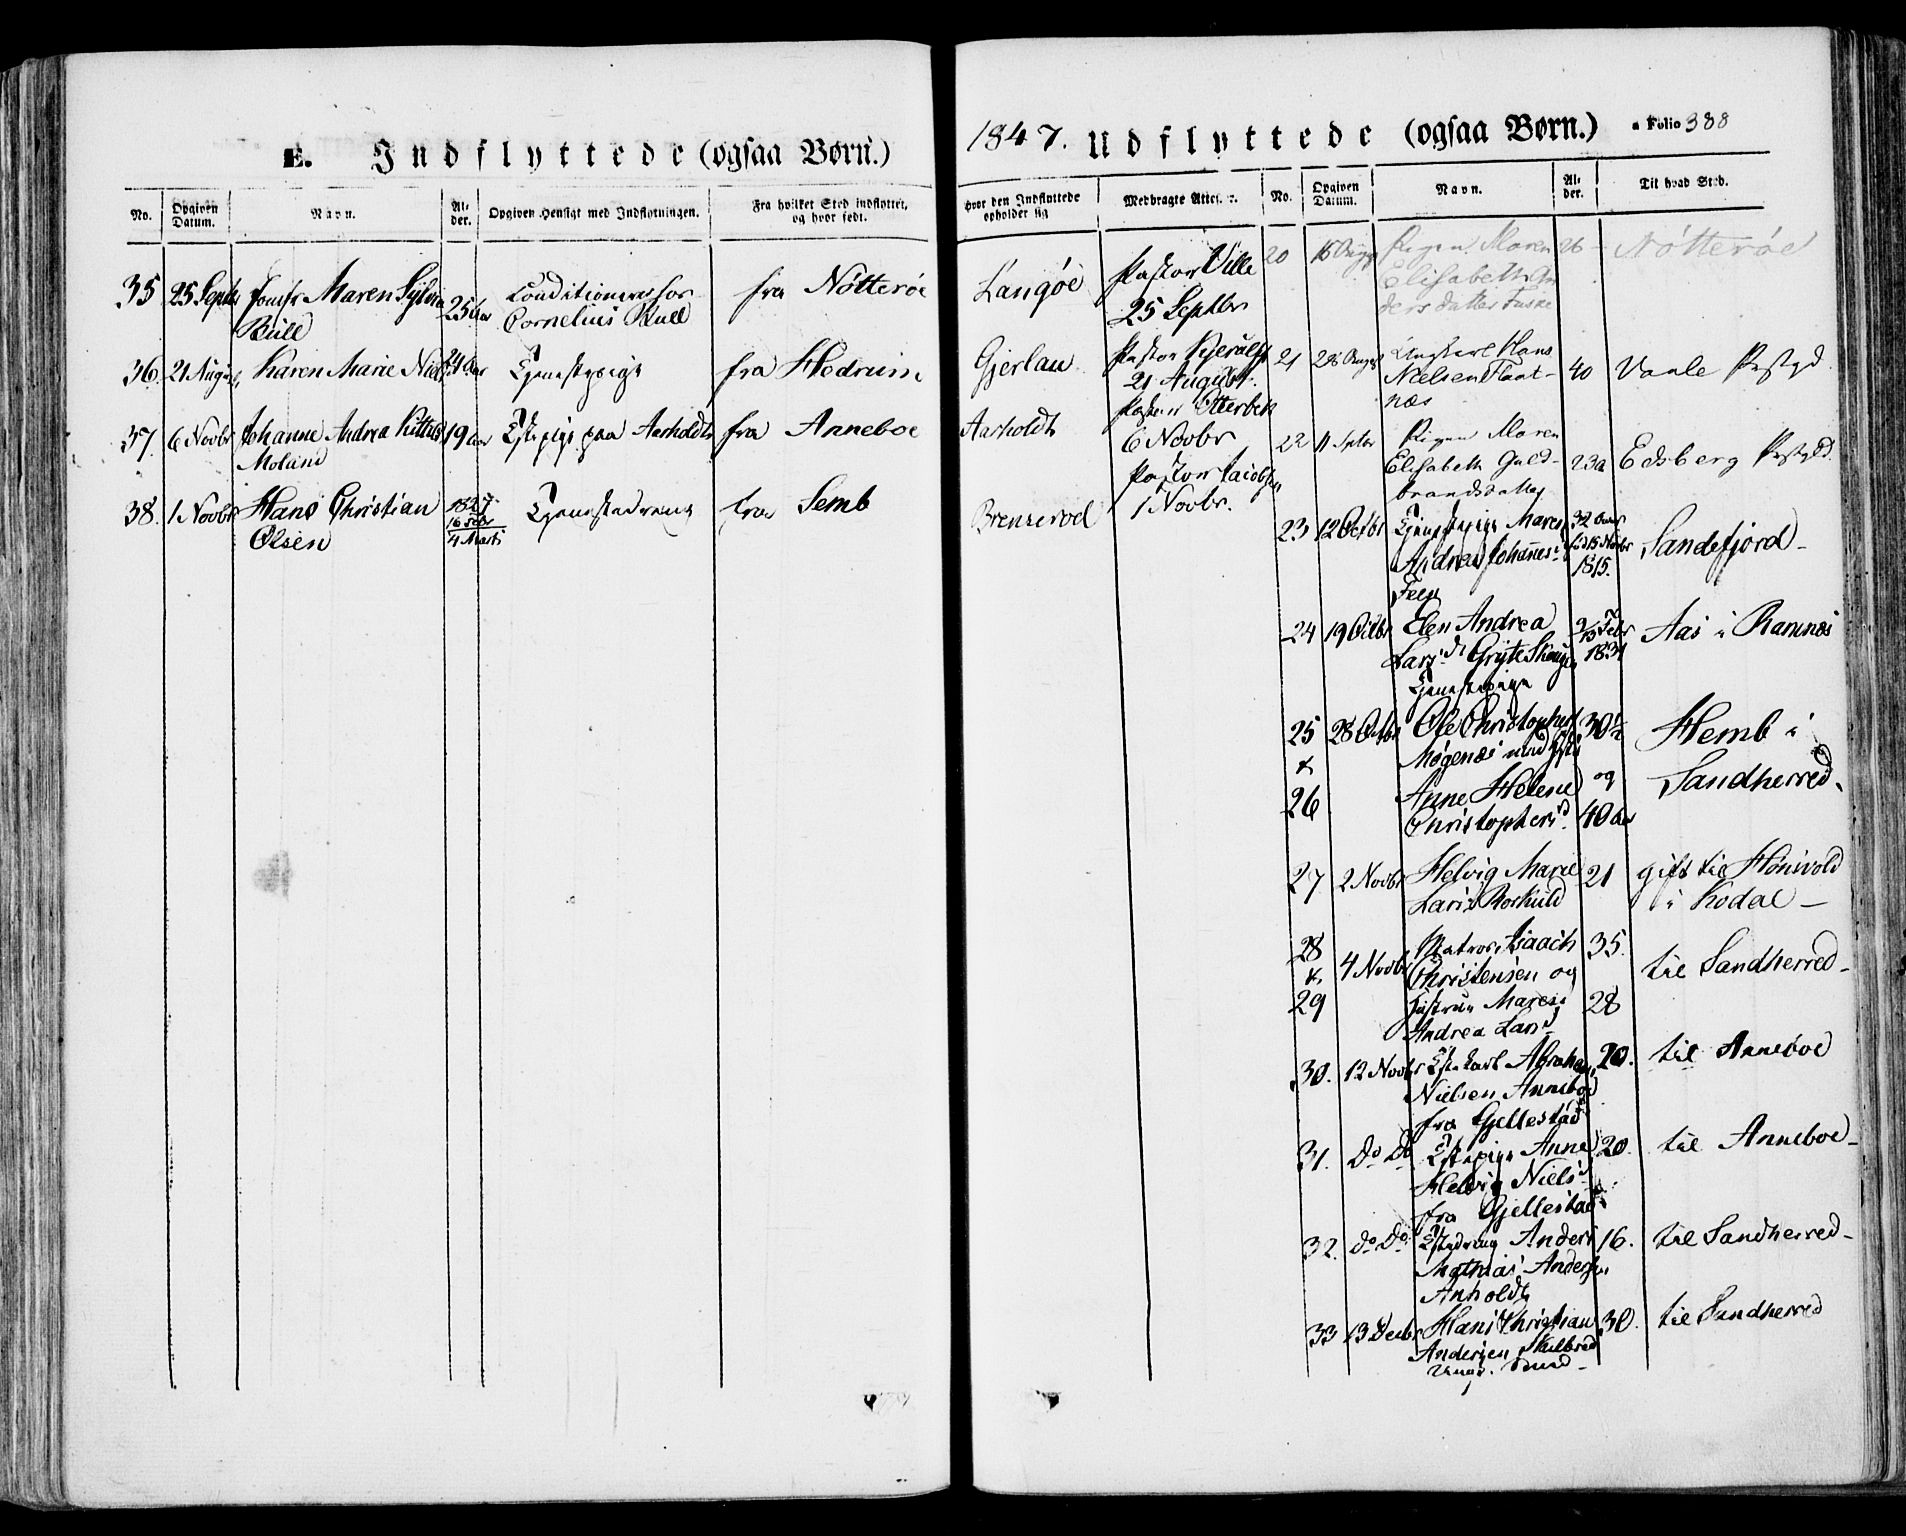 E. Indflyttede (ogsaa Børn.)
No. Opgiven Datum. Navn. Al-der. Opgiven Hensigt med Indflytningen. Fra hvilket Sted indflyttet, og hvor født.
35 25 Septbr Jomfr Maren Sylvia 25 Aar Conditionerer hos fra Nötteröe
Büll Cornelius Bull
36 21 August Karen Marie Niels 24 Aar Tjenestepige fra Hedrum
37. 6 Novbr Johanne Andrea Kittels 19 aar Tjstepige paa Aarholdt fra Anneboe
Moland
38. 1 Novbr Hans Christian 1827 Tjenestedreng fra Semb
Olsen 16 Febr
4 Marti
1847. Udflyttede (ogsaa Børn.) Folio 388
hvor den Indflyttede opholder sig Medbragte Attester. No. Opgiven Datum. Navn. Al-der. Til hvad Sted.
Langöe Pastor Wille 20 Pigen Maren 26 Nötteröe
25 Septbr Elisabeth
Gjerlau Pastor Kjerulf 21 Ungkarl Hans 40 Vaale Prstgd.
21 August. Nielsen
næs
Aarholdt Pastor Otterbek 22 11 Septbr Pigen Maren 23a Edsberg Prstgld.
6 Novbr Elisabeth Guld-
brandsdatter
Pastor Jacobsen
1 Novbr.
23 12 Octbr Tjenestepige Maren 32 Aar Sandefjord
Andrea Johannes fød 15 Novbr
1815.
24 19 Octbr Elen Andrea Febr Aas i Ramnæs
Lars d. Gryte 1831
Tjenestepige
25 28 Octbr Ole Christophers 30½ Hemb i
& Mogenæs med Hstr
26 Anne Helene og Sandherred.
Christophersd. 40 Aar
27 2 Novbr Helvig Marie 21 gift til Hönivold
Lars i Kodal
28 Matros Isaach 35.
& 4 Novbr Christensen og til Sandherred
29 Hustrue Maren 28
Andrea Lars
30. 12 Novbr Tjstekarl Abraham 20. til Anneboe
Nielsen Anneboe
fra Gjellestad
31. Do Do Tjstepige Anne 20. til Anneboe
Helvig Niels
fra Gjellestad
32. Do Do Tjstedreng Anders 16. til Sandherred
Mathias Andersen
Anholdt
33 13 Decbr Hans Christian 30. til Sandherred
Andersen